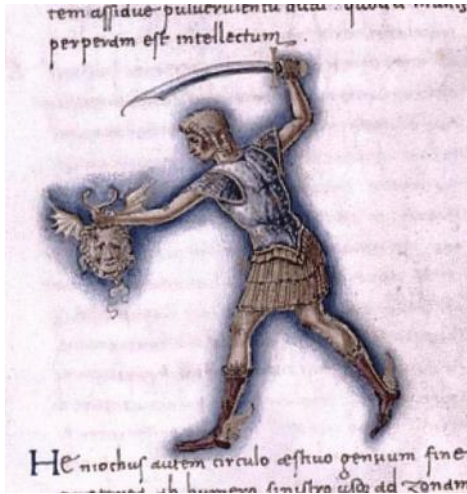 tem assidue pulverulenta
perperam est intellectum
Heniochus autem circulo æstivo genuum fine
ab humero sinistro usq ad zonam